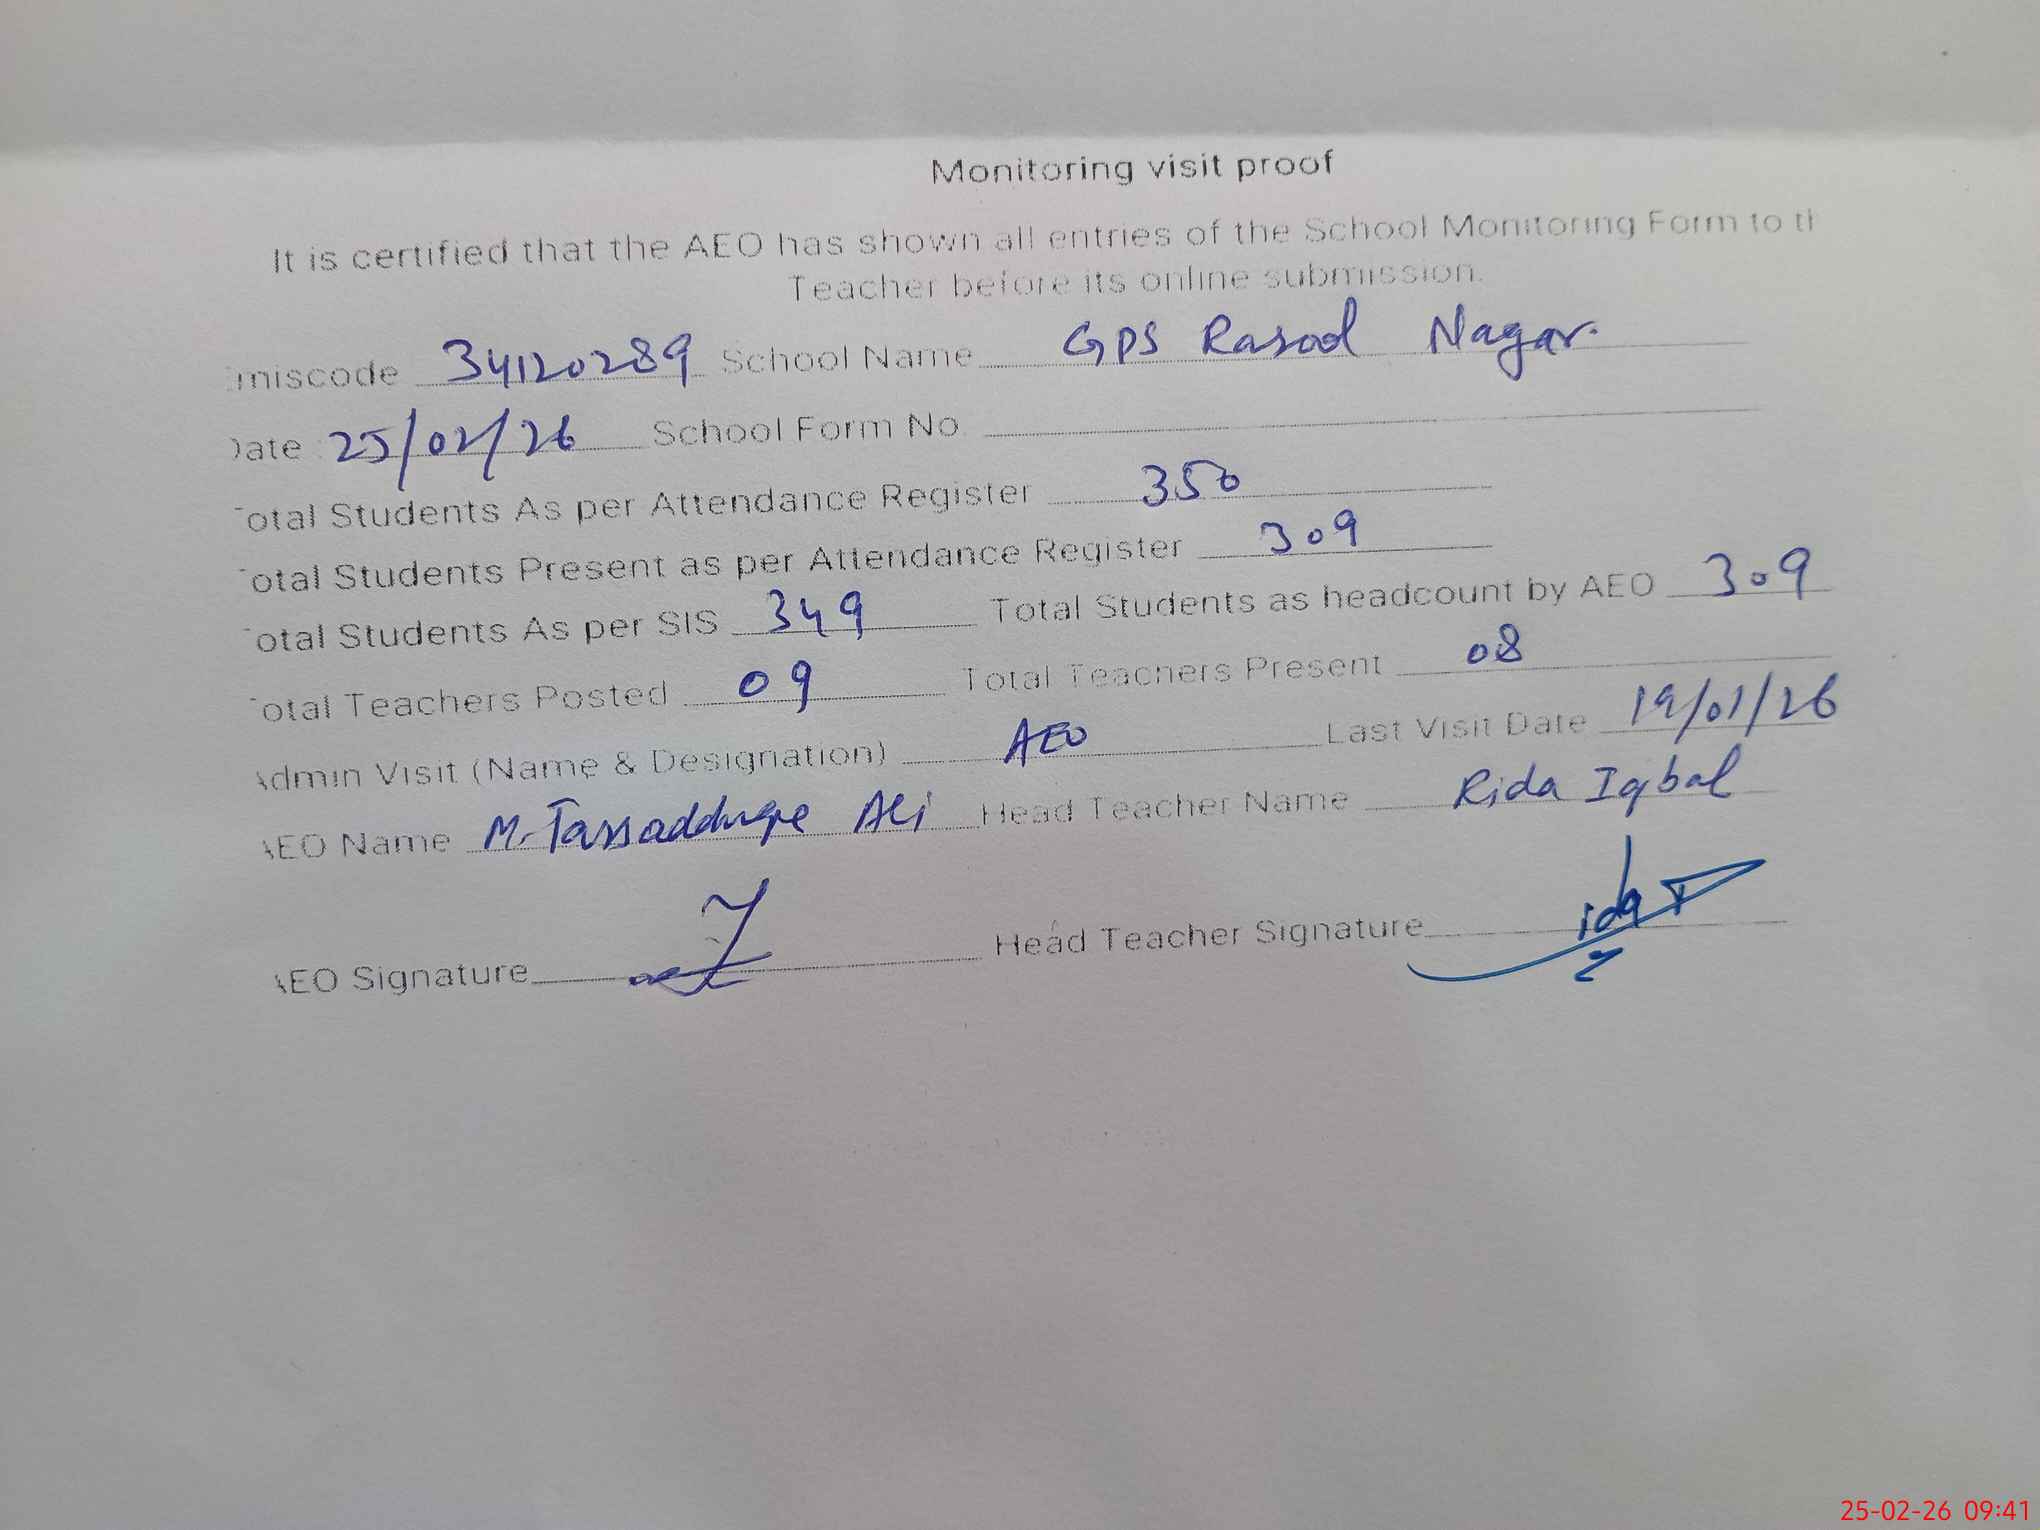 Monitoring visit proof
It is certified that the AEO has shown all entries of the School Monitoring Form to th
Teacher before its online submission.
miscode 34120289 School Name GPS Rasool Nagar.
Date : 25/02/26 School Form No.
Total Students As per Attendance Register 350
Total Students Present as per Attendance Register 309
Total Students As per SIS 349 Total Students as headcount by AEO 309
Total Teachers Posted 09 Total Teachers Present 08
Admin Visit (Name & Designation) AEO Last Visit Date 19/01/26
AEO Name M. Tassadduqe Ali Head Teacher Name Rida Iqbal
AEO Signature Head Teacher Signature
25-02-26 09:41